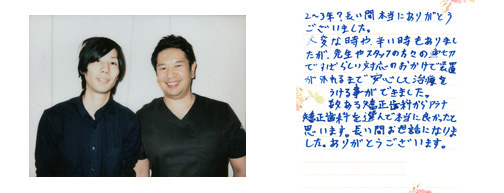 2〜3年?長い間本当にありがとう
ございました。
大変な時や、辛い時もありまし
たが、先生やスタッフの方々の親切
ですばらしい対応のおかげで装置
が外れるまで安心して治療を
うける事ができました。
数ある矯正歯科からプラナ
矯正歯科を選んで本当に良かったと
思います。長い間お世話になりま
した。ありがとうございます。